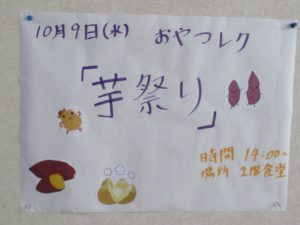 10月9日(水) おやつレク
「芋祭り」
時間 14:00〜
場所 2階食堂